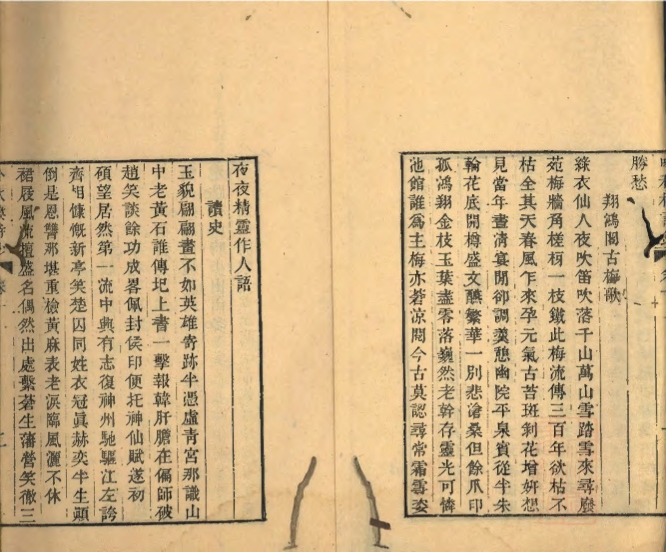 勝愁
翔鴻閣古梅歌
綠衣仙人夜吹笛吹落千山萬山雪踏雪來尋廢
苑梅牆角槎枒一枝鐵此梅流傳三百年欲枯不
枯全其天春風乍來孕元氣古苔斑剝花增妍想
見當年晝清宴閒卻調羹憩幽院平泉賓從半朱
輪花底開樽盛文讌繁華一別悲滄桑但餘爪印
孤鴻翔金枝玉葉盡零落巍然老幹存靈光可憐
池館誰爲主梅亦若涼閱今古莫認尋常霜雪姿
夜夜精靈作人語
讀史
玉貌翩翩畫不如英雄奇跡半憑虛青宮那識山
中老黃石誰傳圯上書一擊報韓肝膽在偏師破
趙笑談餘功成畧佩封侯印便托神仙賦遂初
碩望居然第一流中興有志復神州馳驅江左誇
齊相慷慨新亭笑楚囚同姓衣冠眞赫奕半生顚
倒是恩讐那堪重檢黃麻表老淚臨風灑不休
裙屐風流擅盛名偶然出處繫蒼生藩營笑徹三